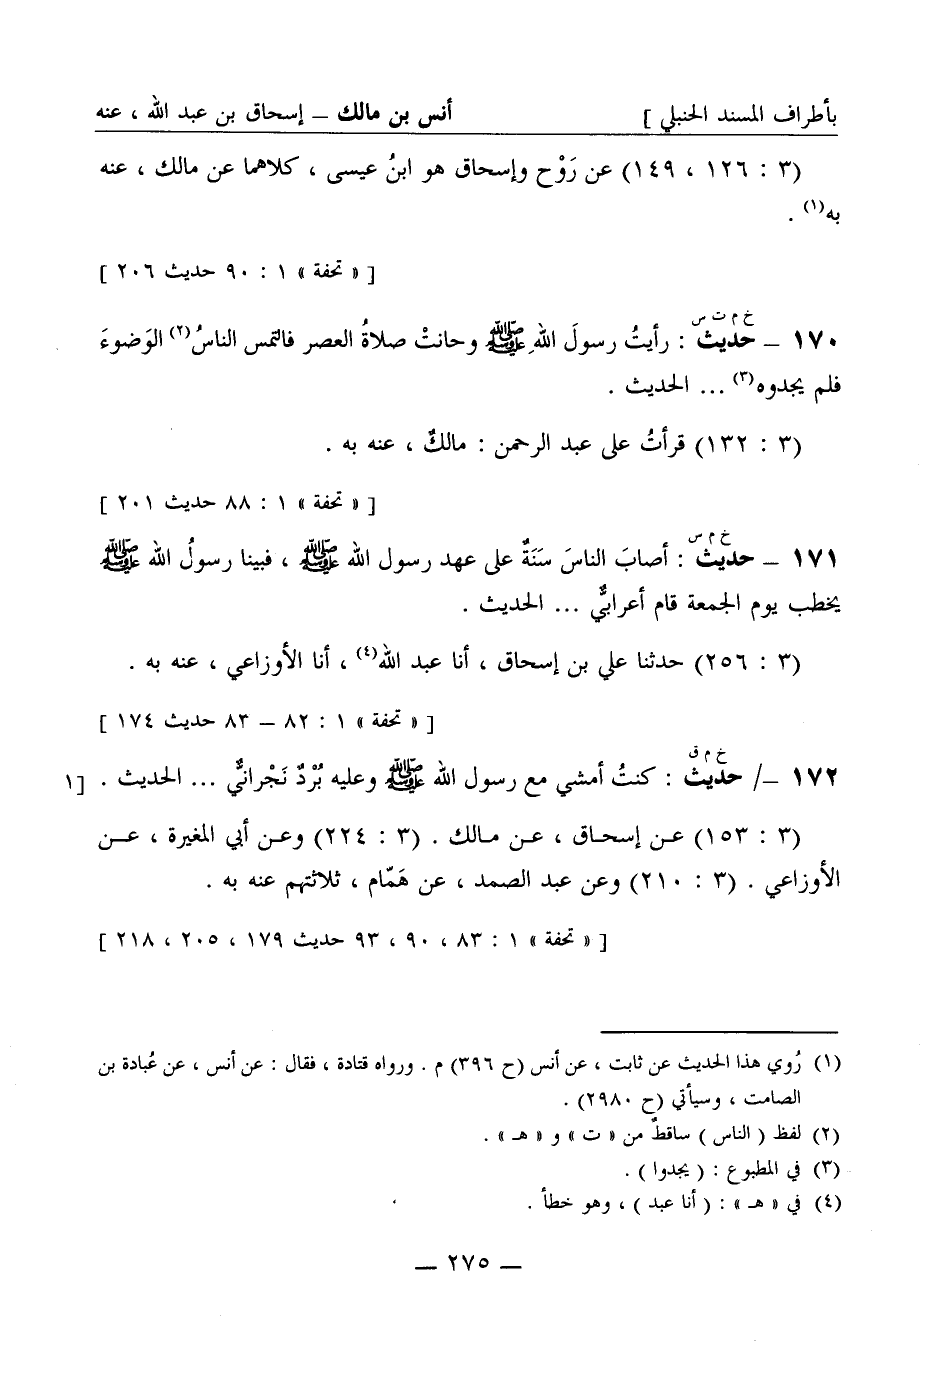 بأطراف المسند الحنبلي ] أنس بن مالك ــ إسحاق بن عبد الله ، عنه
(٣ : ١٢٦ ، ١٤٩) عن رَوْح وإسحاق هو ابنُ عيسى ، كلاهما عن مالك ، عنه
به(١) .
[ « تحفة » ١ : ٩٠ حديث ٢٠٦ ]
خ م ت س
١٧٠ ــ حديث : رأيتُ رسولَ اللهِ ﷺ وحانتْ صلاةُ العصر فالتمس الناسُ(٢) الوَضوءَ
فلم يجدوه(٣) ... الحديث .
(٣ : ١٣٢) قرأتُ على عبد الرحمن : مالكٌ ، عنه به .
[ « تحفة » ١ : ٨٨ حديث ٢٠١ ]
خ م س
١٧١ ــ حديث : أصابَ الناسَ سَنَةٌ على عهد رسول الله ﷺ ، فبينا رسولُ الله ﷺ
يخطب يوم الجمعة قام أعرابيٌّ ... الحديث .
(٣ : ٢٥٦) حدثنا علي بن إسحاق ، أنا عبد الله(٤) ، أنا الأوزاعي ، عنه به .
[ « تحفة » ١ : ٨٢ ــ ٨٣ حديث ١٧٤ ]
خ م ق
١٧٢ ــ/ حديث : كنتُ أمشي مع رسول الله ﷺ وعليه بُرْدٌ نَجْرانيٌّ ... الحديث . [١
(٣ : ١٥٣) عن إسحاق ، عن مالك . (٣ : ٢٢٤) وعن أبي المغيرة ، عن
الأوزاعي . (٣ : ٢١٠) وعن عبد الصمد ، عن هَمّام ، ثلاثتهم عنه به .
[ « تحفة » ١ : ٨٣ ، ٩٠ ، ٩٣ حديث ١٧٩ ، ٢٠٥ ، ٢١٨ ]
(١) رُوي هذا الحديث عن ثابت ، عن أنس (ح ٣٩٦) م . ورواه قتادة ، فقال : عن أنس ، عن عُبادة بن
الصامت ، وسيأتي (ح ٢٩٨٠) .
(٢) لفظ ( الناس ) ساقطٌ من « ت » و « هـ » .
(٣) في المطبوع : ( يجدوا ) .
(٤) في « هـ » : ( أنا عبد ) ، وهو خطأ .
ــ ٢٧٥ ــ